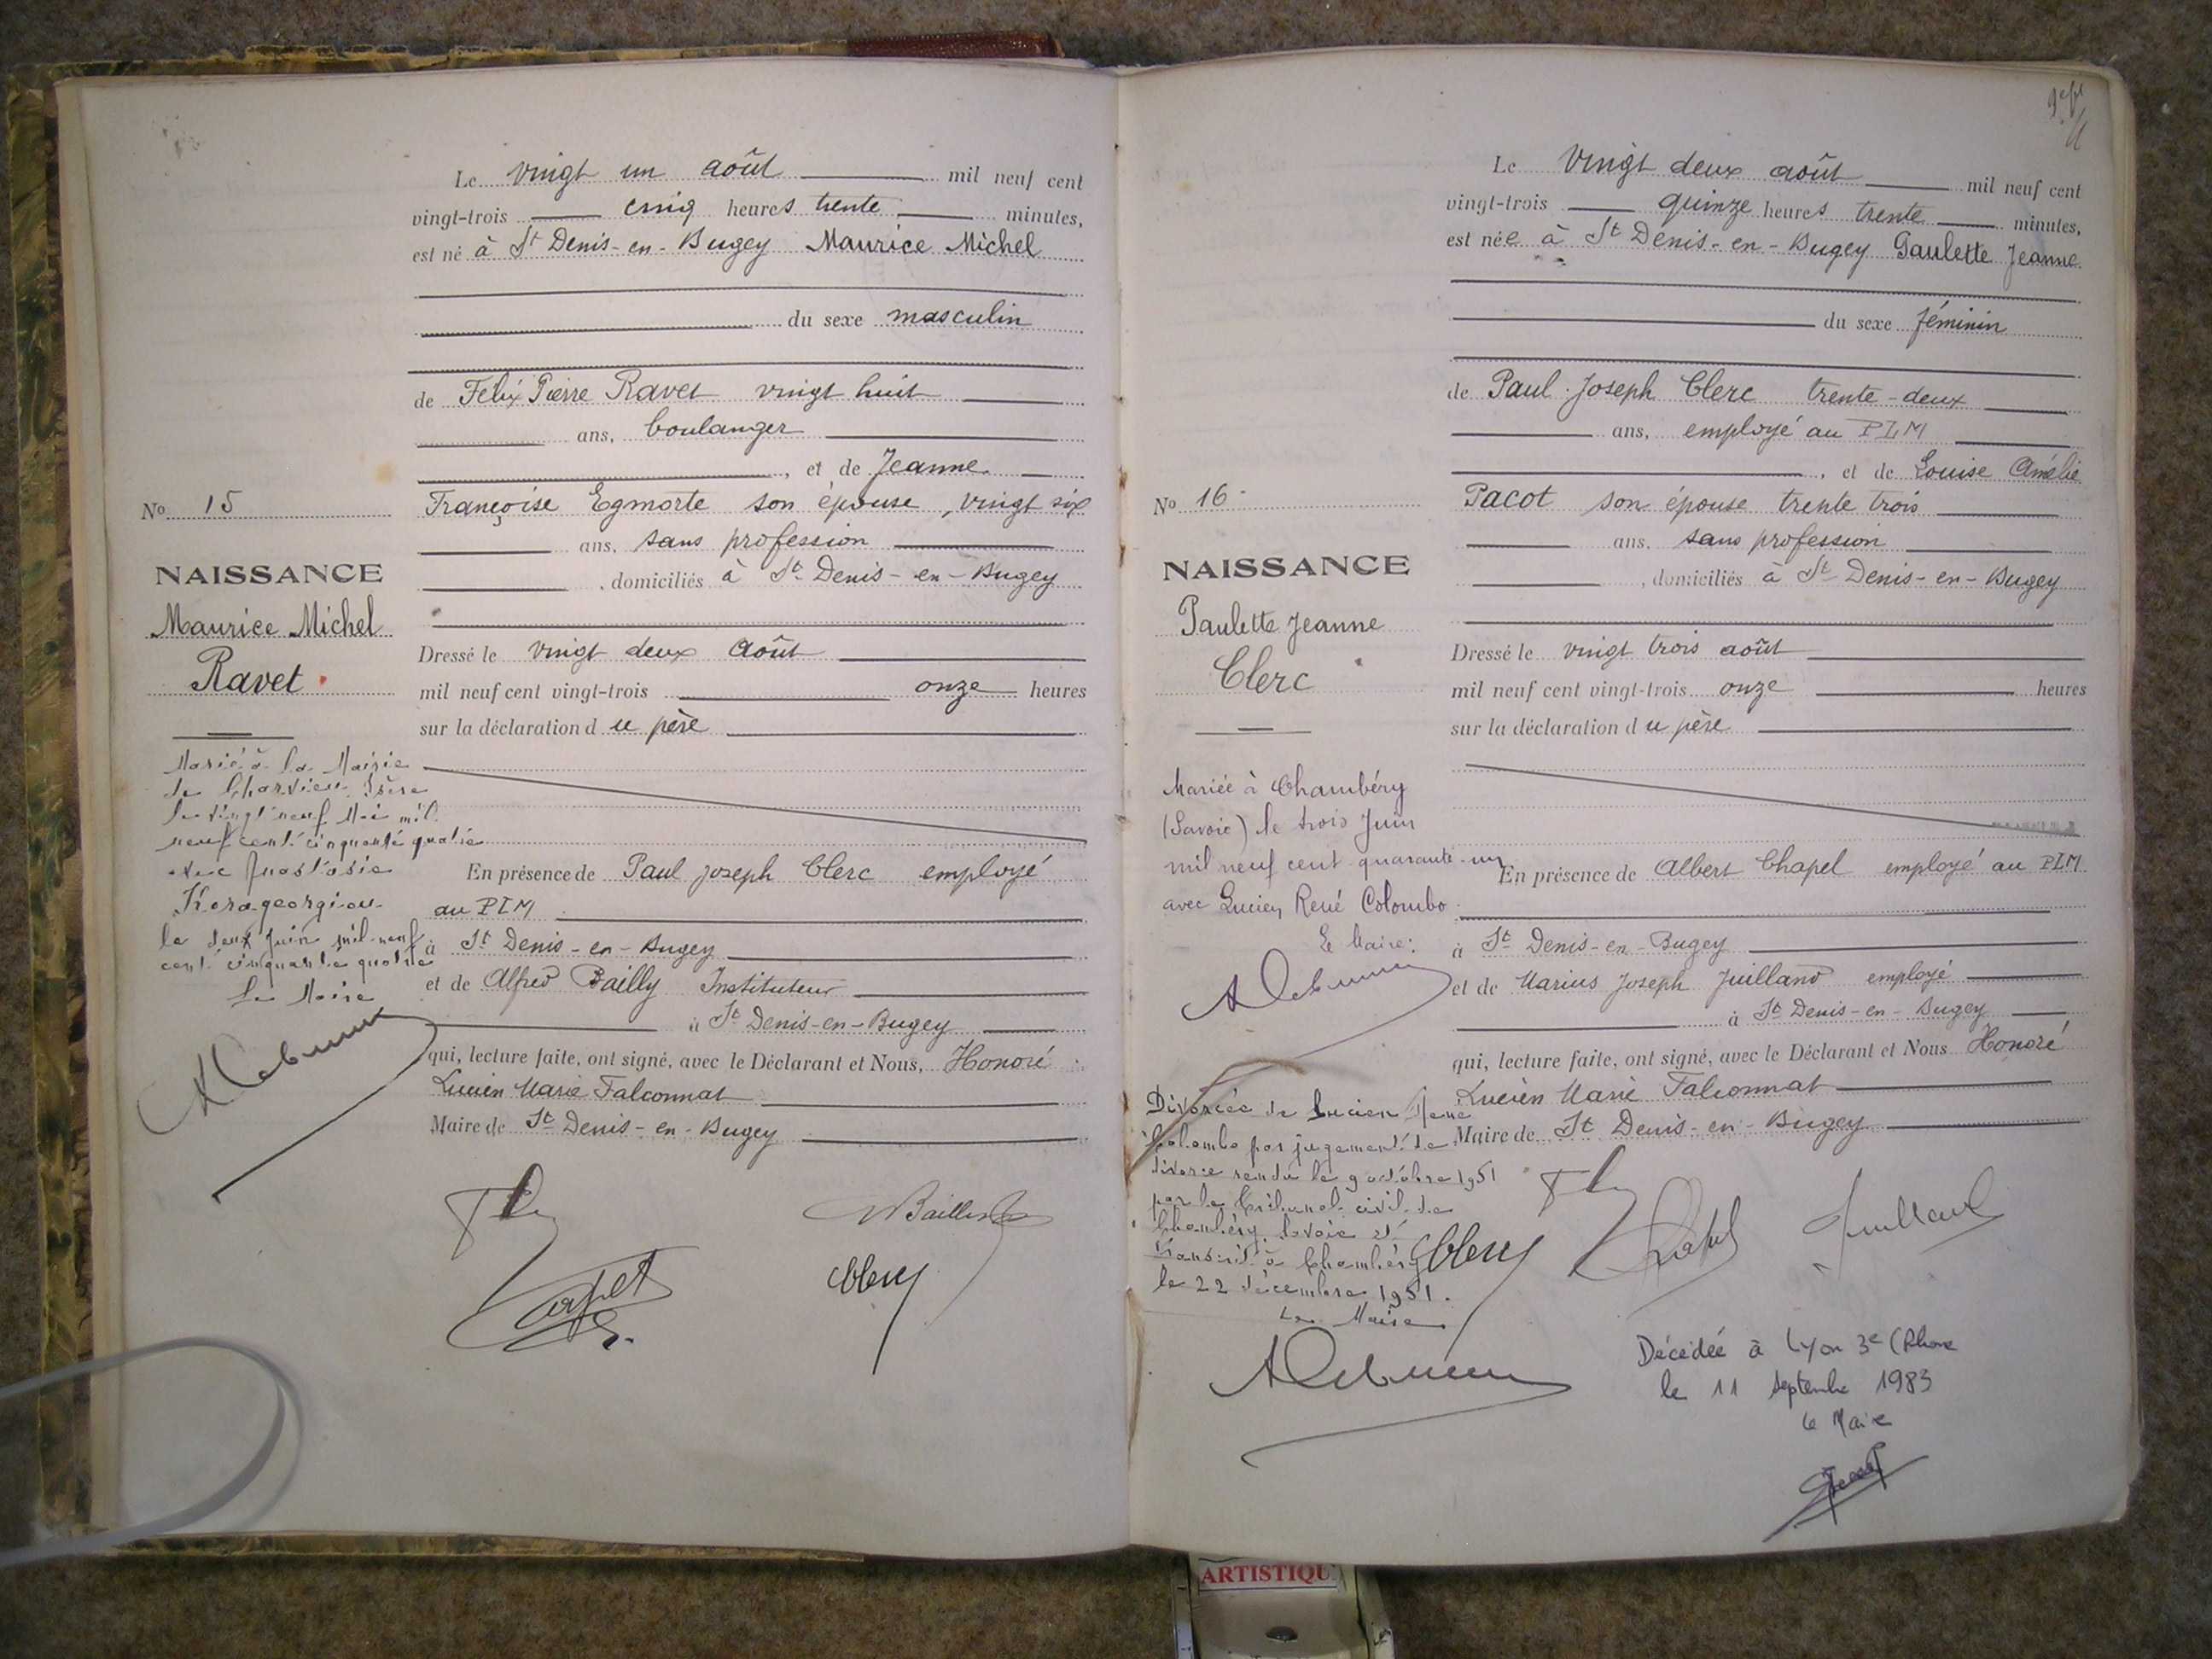 Le vingt un août mil neuf cent
vingt-trois cinq heures trente minutes,
est né à St Denis-en-Bugey Maurice Michel
du sexe masculin
de Félix Pierre Ravet vingt huit
ans, boulanger
, et de Jeanne
Françoise Egmorte son épouse, vingt six
ans, sans profession
, domiciliés à St Denis-en-Bugey
Dressé le vingt deux août
mil neuf cent vingt-trois onze heures
sur la déclaration du père
En présence de Paul Joseph Clerc employé
au PLM
à St Denis-en-Bugey
et de Alfred Bailly Instituteur
à St Denis-en-Bugey
qui, lecture faite, ont signé, avec le Déclarant et Nous, Honoré
Lucien Marie Falconnat
Maire de St Denis-en-Bugey
No 15
NAISSANCE
Maurice Michel
Ravet
Marié à la Mairie
de Charvieu Isère
le vingt neuf Mai mil
neuf cent cinquante quatre
avec Anastasie
Karageorgiou
le deux Juin mil-neuf
cent cinquante quatre
Le Maire
Le vingt deux août mil neuf cent
vingt-trois quinze heures trente minutes,
est née à St Denis-en-Bugey Paulette Jeanne
du sexe féminin
de Paul Joseph Clerc trente-deux
ans, employé au PLM
, et de Louise Amélie
Pacot son épouse trente trois
ans, sans profession
, domiciliés à St Denis-en-Bugey
Dressé le vingt trois août
mil neuf cent vingt-trois onze heures
sur la déclaration du père
En présence de Albert Chapel employé au PLM
à St Denis-en-Bugey
et de Marius Joseph Juilland employé
à St Denis-en-Bugey
qui, lecture faite, ont signé, avec le Déclarant et Nous Honoré
Lucien Marie Falconnat
Maire de St Denis-en-Bugey
No 16
NAISSANCE
Paulette Jeanne
Clerc
Mariée à Chambéry
(Savoie) le trois Juin
mil neuf cent quarante-un
avec Lucien René Colombo
Le Maire:
Divorcée de Lucien René
Colombo par jugement de
divorce rendu le 9 octobre 1951
par le Tribunal civil de
Chambéry Savoie et
transcrit à Chambéry
le 22 décembre 1951.
Le Maire
Décédée à Lyon 3e (Rhone
le 11 septembre 1983
Le Maire
ARTISTIQU